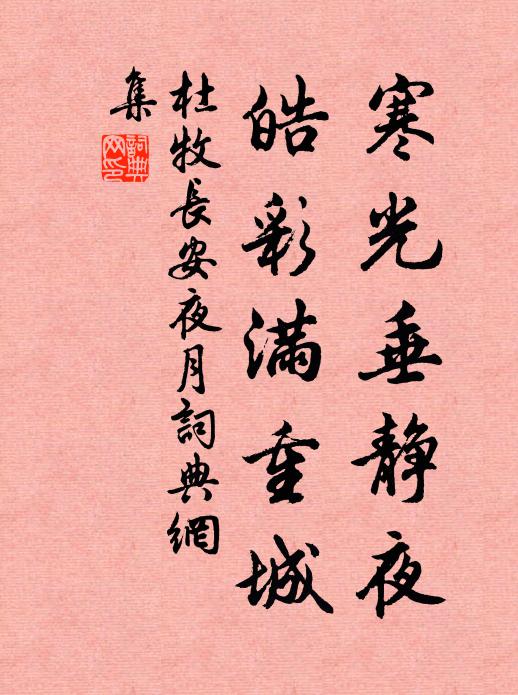 寒光垂静夜
皓彩满重城
杜牧長安夜月詞典網
集
詞典
网印